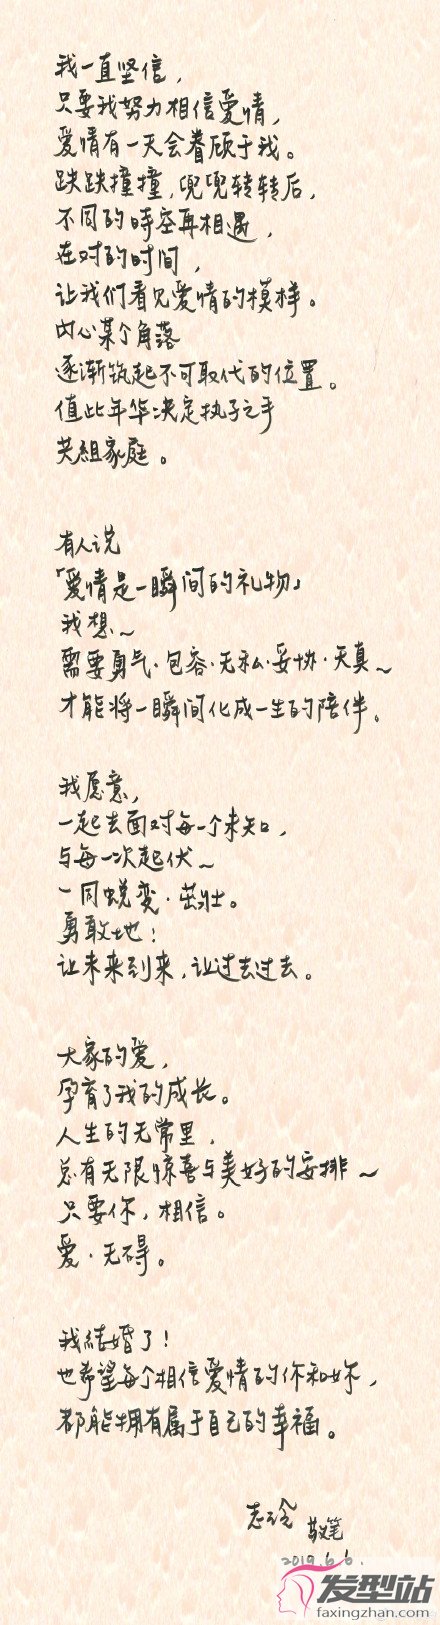 我一直坚信，
只要我努力相信爱情，
爱情有一天会眷顾于我。
跌跌撞撞，兜兜转转后，
不同的時空再相遇，
在对的时间，
让我们看见爱情的模样。
内心某个角落
逐渐筑起不可取代的位置。
值此年华决定执子之手
共組家庭。
有人说
「爱情是一瞬间的礼物」
我想～
需要勇气·包容·无私·妥协·天真～
才能将一瞬间化成一生的陪伴。
我愿意，
一起去面对每一个未知，
与每一次起伏～
一同蜕变·茁壮。
勇敢地：
让未来到来，让过去过去。
大家的爱，
孕育了我的成长。
人生的无常里，
总有无限惊喜与美好的安排～
只要你，相信。
爱·无碍。
我結婚了！
也希望每个相信爱情的你和妳，
都能拥有属于自己的幸福。
志玲 敬笔
2019.6.6.
发型站
faxingzhan.com